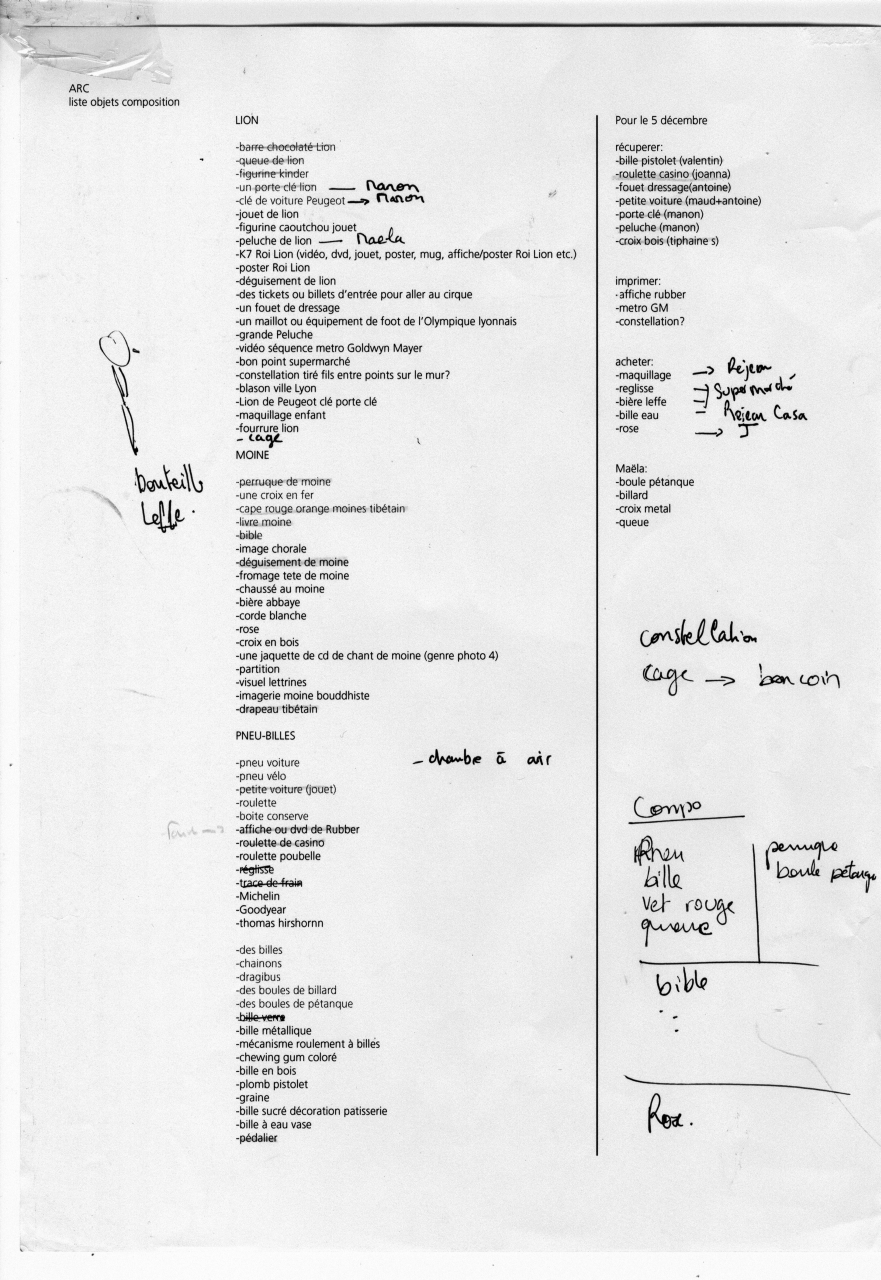 ARC
liste objets composition
LION
-barre chocolaté Lion
-queue de lion
-figurine kinder
-un porte clé lion — Manon
-clé de voiture Peugeot → Manon
-jouet de lion
-figurine caoutchou jouet
-peluche de lion — Maela
-K7 Roi Lion (vidéo, dvd, jouet, poster, mug, affiche/poster Roi Lion etc.)
-poster Roi Lion
-déguisement de lion
-des tickets ou billets d'entrée pour aller au cirque
-un fouet de dressage
-un maillot ou équipement de foot de l'Olympique lyonnais
-grande Peluche
-vidéo séquence metro Goldwyn Mayer
-bon point supermarché
-constellation tiré fils entre points sur le mur?
-blason ville Lyon
-Lion de Peugeot clé porte clé
-maquillage enfant
-fourrure lion
- cage
bouteill
Leffe.
MOINE
-perruque de moine
-une croix en fer
-cape rouge orange moines tibétain
-livre moine
-bible
-image chorale
-déguisement de moine
-fromage tete de moine
-chaussé au moine
-bière abbaye
-corde blanche
-rose
-croix en bois
-une jaquette de cd de chant de moine (genre photo 4)
-partition
-visuel lettrines
-imagerie moine bouddhiste
-drapeau tibétain
PNEU-BILLES
-pneu voiture
- chambe à air
-pneu vélo
-petite voiture (jouet)
-roulette
-boite conserve
-affiche ou dvd de Rubber
-roulette de casino
-roulette poubelle
-réglisse
-trace de frain
-Michelin
-Goodyear
-thomas hirshornn
-des billes
-chainons
-dragibus
-des boules de billard
-des boules de pétanque
-bille verre
-bille métallique
-mécanisme roulement à billes
-chewing gum coloré
-bille en bois
-plomb pistolet
-graine
-bille sucré décoration patisserie
-bille à eau vase
-pédalier
Pour le 5 décembre
récuperer:
-bille pistolet (valentin)
-roulette casino (joanna)
-fouet dressage(antoine)
-petite voiture (maud+antoine)
-porte clé (manon)
-peluche (manon)
-croix bois (tiphaine s)
imprimer:
-affiche rubber
-metro GM
-constellation?
acheter:
-maquillage → Rejean
-reglisse
Supermarché
-bière leffe
-bille eau – Rejean Casa
-rose → J
Maëla:
-boule pétanque
-billard
-croix metal
-queue
constellation
cage → bon coin
Compo
Pneu
bille
vet rouge
queue
perruque
boule pétanque
bible